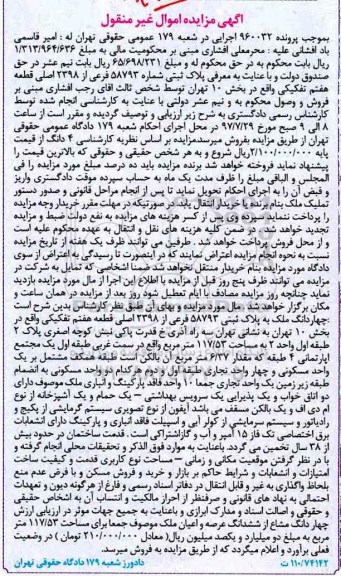 آگهی مزایده اموال غیر منقول
بموجب پرونده ۹۶۰۰۳۲ اجرایی در شعبه ۱۷۹ عمومی حقوقی تهران له : امیر قاسمی
باد افشانی علیه : محرمعلی افشاری مبنی بر محکومیت مالی به مبلغ ۱/۳۱۳/۹۶۴/۶۳۶
ریال بابت محکوم به در حق محکوم له و مبلغ ۶۵/۶۹۸/۲۳۱ ریال بابت نیم عشر در حق
صندوق دولت و با عنایت به معرفی پلاک ثبتی شماره ۵۸۷۹۳ فرعی از ۲۳۹۸ اصلی قطعه
هفتم تفکیکی واقع در بخش ۱۰ تهران توسط شخص ثالث اقای رجب افشاری مبنی بر
فروش و وصول محکوم به و نیم عشر دولتی با عنایت به کارشناسی انجام شده توسط
کارشناس رسمی دادگستری به شرح زیر ارزیابی و توصیف گردیده و مقرر است از ساعت
۸ الی ۹ صبح مورخ ۹۷/۷/۲۹ در محل اجرای احکام شعبه ۱۷۹ دادگاه عمومی حقوقی
تهران از طریق مزایده بفروش میرسد. مزایده بر اساس نظریه کارشناسی ۴ دانگ از قیمت
پایه ۲/۱۰۰/۰۰۰/۰۰۰ ریال شروع و به هر شخص حقیقی و حقوقی که بالاترین قیمت را
پیشنهاد نماید فروخته خواهد شد برنده مزایده باید ده درصد مبلغ مورد مزایده را فی
المجلس و الباقی مبلغ را ظرف مدت یک ماه به حساب سپرده موقت دادگستری واریز
و قبض آن را به اجرای احکام تحویل نماید تا پس از انجام مراحل قانونی و صدور دستور
تملیک ملک بنام برنده یا خریدار انتقال یابد. در صورتیکه در مهلت مقرر خریدار وجه مزایده
را پرداخت ننماید سپرده وی پس از کسر هزینه های مزایده به نفع دولت ضبط و مزایده
تجدید خواهد شد . در ضمن کلیه هزینه های نقل و انتقال به عهده محکوم علیه است
و از محل فروش پرداخت خواهد شد . طرفین می توانند ظرف یک هفته از تاریخ مزایده
نسبت به نحوه انجام مزایده اعتراض نمایند که در اینصورت تا رسیدگی به اعتراض از سوی
دادگاه مورد مزایده بنام خریدار منتقل نخواهد شد ضمنا اشخاصی که تمایل به شرکت در
مزایده می توانند ظرف پنج روز قبل از مزایده با اطلاع این اجرا از مال مورد مزایده بازدید
نمایند چنانچه روز مزایده مصادف با ایام تعطیل شود روز بعد از مزایده در همان ساعت و
مکان برگزار خواهد شد . مال مورد مزایده و بهای آن طبق نظر کارشناس بدین شرح است
چهاردانگ ملک به پلاک ثبتی ۵۸۷۹۳ فرعی از ۲۳۹۸ اصلی قطعه هفتم تفکیکی واقع در
بخش ۱۰ تهران به نشانی تهران سه راه آذری خ قدرت پاکی نبش کوچه اصغری پلاک ۲
طبقه اول واحد ۲ به مساحت ۱۱۷/۵۳ متر مربع واقع در سمت غربی طبقه اول یک مجتمع
اپارتمانی ۴ طبقه که مقدار ۶/۳۷ متر مربع آن بالکن است طبقه همکف مشتمل بر یک
واحد مسکونی و چهار واحد تجاری طبقه اول و دوم هرکدام دو واحد مسکونی به انضمام
طبقه زیر زمین یک واحد تجاری جمعا ۱۰ واحد فاقد پارکینگ و انباری ملک موصوف دارای
دو اتاق خواب و یک پذیرایی یک سرویس بهداشتی – یک حمام و یک آشپزخانه از نوع
ام دی اف و یک بالکن مسقف می باشد آیفون از نوع تصویری سیستم گرمایشی از پکیج و
رادیاتور و سیستم سرمایشی از کولر آبی و اسپیلت فاقد انباری و پارکینگ دارای انشعابات
برق اختصاصی تک فاز ۱۵ آمپر و آب و گازاشتراکی است . قدمت ساختمان در حدود بیش
از ۳۸ سال تخمین می گردد. باعنایت به موارد فوق الذکر و تحقیقات محلی انجام گرفته و
با در نظر گرفتن موقعیت مکانی و زمانی - مساحت نوع کاربری قدمت و کیفیت ساخت
امتیازات و انشعابات و شرایط حاکم بر بازار و خرید و فروش مسکن و با فرض عدم منع
بلحاظ واگذاری به غیر و قابل انتقال در دفاتر اسناد رسمی و فارغ از هرگونه دیون و تعهدات
احتمالی به نهاد های قانونی و صرفنظر از احراز مالکیت و انتساب آن به اشخاص حقیقی
و حقوقی و اصالت اسناد و مدارک ابرازی و باعنایت به جمیع جهات موثر در ارزیابی ارزش
چهار دانگ مشاع از ششدانگ عرصه و اعیان ملک موصوف جمعا برای مساحت ۱۱۷/۵۳ متر
مربع به مبلغ دو میلیارد و یکصد میلیون ریال( معادل ۲۱۰/۰۰۰/۰۰۰ تومان ) در وضعیت
فعلی برآورد و اعلام میگردد که از طریق مزایده به فروش میرسد.
۱۱۰/۷۴۱۴۲ ت دادورز شعبه ۱۷۹ دادگاه حقوقی تهران